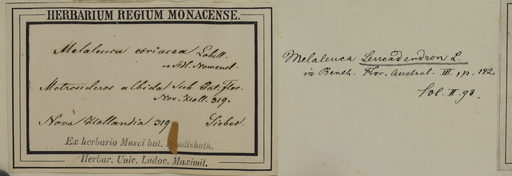 HERBARIUM REGIUM MONACENSE.
Melaleuca coriacea Labill.
Metrosideros albida Sieb. Pat. Flor.
Nov. Holl. 319.
Nova Hollandia 319 Sieber.
Ex herbario Musei bot.
Herbar. Univ. Ludov. Maximil.
Melaleuca Leucadendron L.
in Benth. Flor. Austral. III, p. 142
fol. II 93.